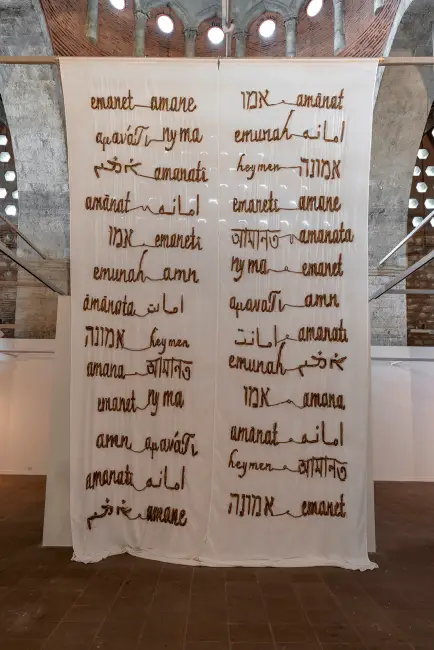 emanet amane
αμανάτι ny ma
amanati
amānat امانه
אמו emaneti
emunah amn
āmānata امانت
אמונה heymen
amana আমানত
emanet ny ma
amn αμανάτι
amanati امانه
amane
אמו amānat
emunah امانه
heymen אמונה
emaneti amane
আমানত amanata
ny ma emanet
αμανάτι amn
امانت amanati
emunah
אמו amana
amanat امانه
heymen আমানত
אמונה emanet